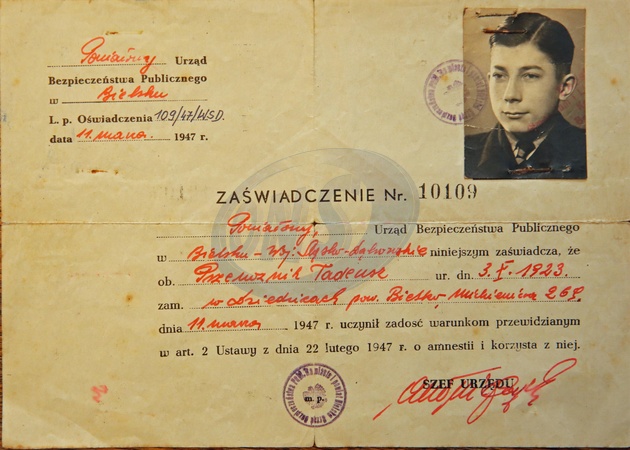 Powiatowy Urząd
Bezpieczeństwa Publicznego
w Bielsku
L. p. Oświadczenia 109/47/WSD.
data 11. marca. 1947 r.
ZAŚWIADCZENIE Nr. 10109
Powiatowy, Urząd Bezpieczeństwa Publicznego
w Bielsku - Woj. Śląsko-Dąbrowskie niniejszym zaświadcza, że
ob. Przewoźnik Tadeusz ur. dn. 3. X. 1923.
zam. pow. Bielsko, Mickiewicza
dnia 11. marca 1947 r. uczynił zadość warunkom przewidzianym
w art. 2 Ustawy z dnia 22 lutego 1947 r. o amnestii i korzysta z niej.
SZEF URZĘDU
m. p.